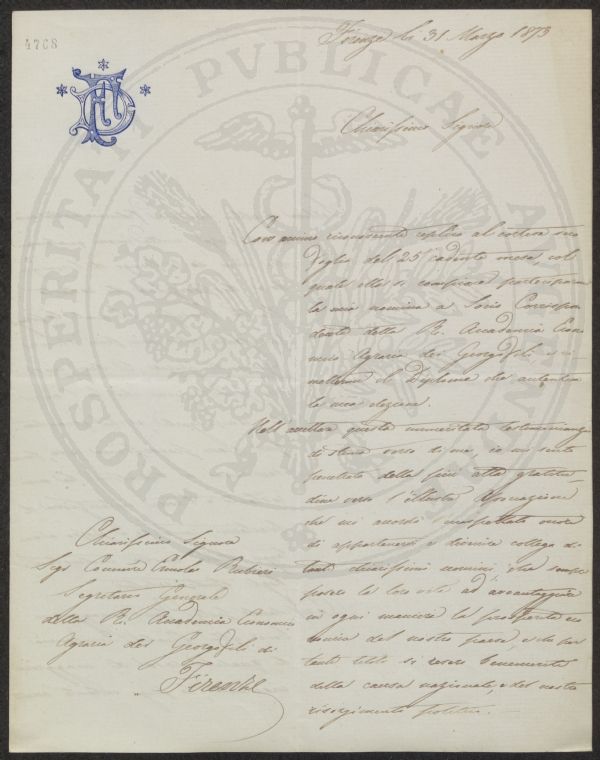 4768
Firenze li 31 Marzo 1873
PROSPERITATI PUBLICAE AUGENDAE
Chiarissimo Signore
Con animo riconoscente replico al cortese suo
foglio del 25 cadente mese, col
quale ella si compiace partecipare
la mia nomina a Socio Corrispon
dente della R. Accademia Econ
Agraria dei Georgofili e
il Diploma che autentica
la mia elezione.
Nell' questa immeritata testimonianza
di stima verso di me, io mi sento
penetrato della più alta gratitu
dine verso l'illustre Associazione
che mi accordò l'inaspettato onore
di appartenervi e divenire collega di
tanti chiarissimi uomini, che sempre
posero la loro ad avvantaggiare
in ogni maniera la prosperità eco
nomica del nostro paese, e da per
tanto titolo si resero benemeriti
della causa nazionale, e del nostro
risorgimento politico.
Chiarissimo Signore
Sigr Commre Rubieri
Segretario Generale
della R. Accademia Economico
Agraria dei Georgofili di
Firenze